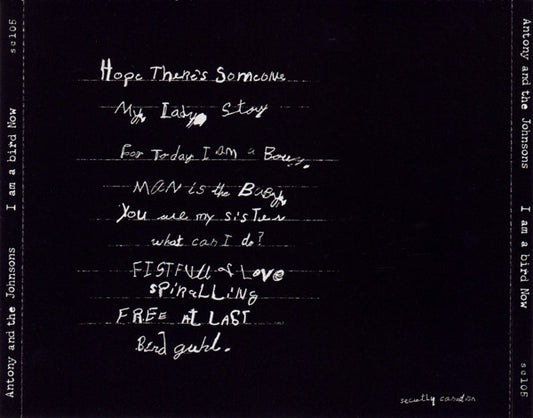 Antony and the Johnsons I am a bird Now sc105
Hope There's Someone
My Lady Story
For Today I am a Boy
MAN is the Baby
You are my sister
what can I do?
FISTFUll of LOVE
SPiRaLLiNg
FREE at LAST
Bird guhl.
secretly canadian
Antony and the Johnsons I am a bird Now sc105